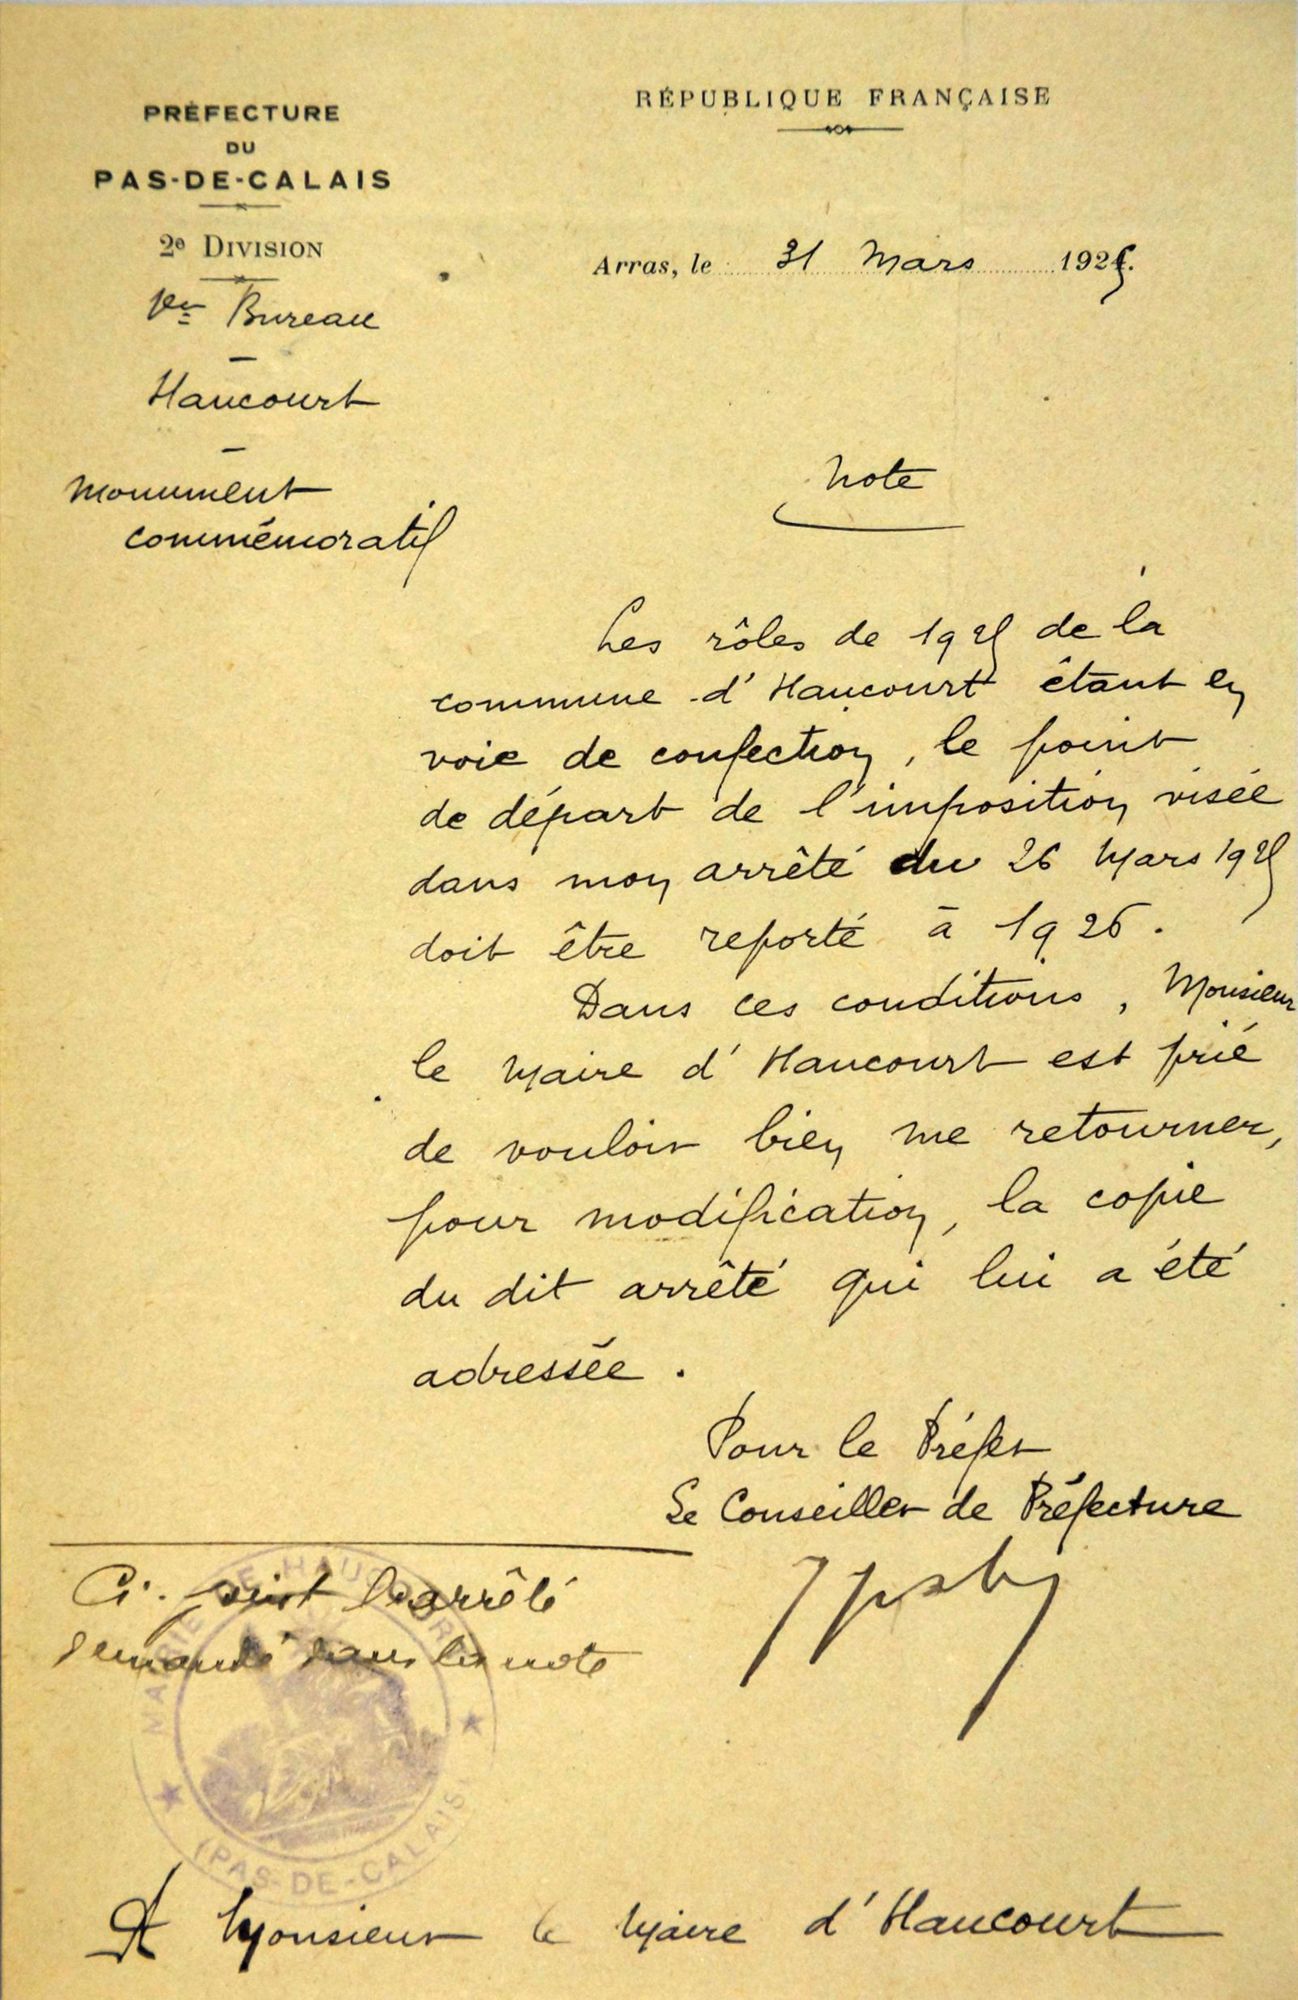 PRÉFECTURE
DU
PAS-DE-CALAIS
2e DIVISION
1er Bureau
Haucourt
Monument
commémoratif
RÉPUBLIQUE FRANÇAISE
Arras, le 31 Mars 1925.
Note
Les rôles de 1925 de la
commune d'Haucourt étant en
voie de confection, le point
de départ de l'imposition visée
dans mon arrêté du 26 Mars 1925
doit être reporté à 1926.
Dans ces conditions, Monsieur
le Maire d'Haucourt est prié
de vouloir bien me retourner,
pour modification, la copie
du dit arrêté qui lui a été
adressée.
Pour le Préfet
Le Conseiller de Préfecture
Ci-joint l'arrêté
demandé dans la note
MAIRIE DE HAUCOURT
(PAS-DE-CALAIS)
A Monsieur le Maire d'Haucourt